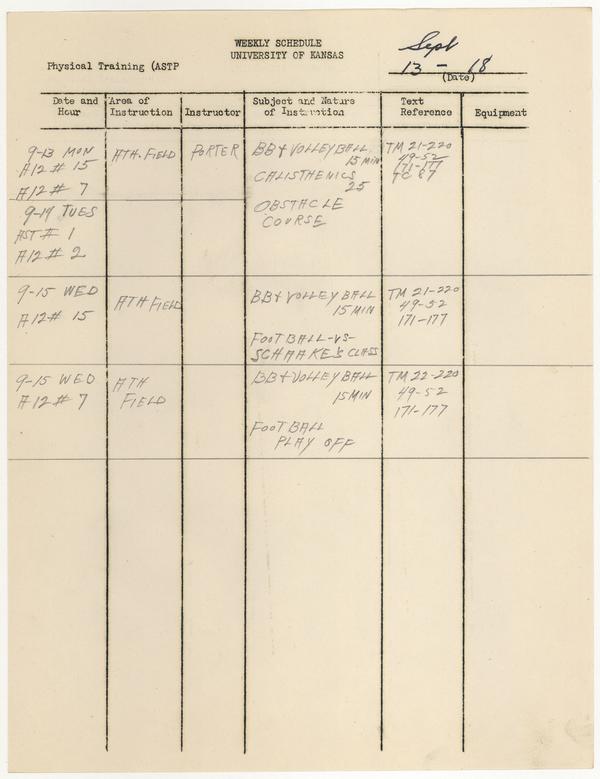 WEEKLY SCHEDULE
UNIVERSITY OF KANSAS
Sept
13 - 18
(Date)
Physical Training (ASTP
Date and Hour
Area of Instruction
Instructor
Subject and Nature of Instruction
Text Reference
Equipment
9-13 MON
A12# 15
A12# 7
ATH. FIELD
PORTER
BB & VOLLEYBALL
15 MIN
CALISTHENICS
25
TM 21-220
49-52
171-177
TC 87
9-14 TUES
AST# 1
A12# 2
OBSTACLE
COURSE
9-15 WED
A12# 15
ATH FIELD
BB & VOLLEY BALL
15 MIN
FOOTBALL-VS-
SCHAAKE'S CLASS
TM 21-220
49-52
171-177
9-15 WED
A12# 7
ATH
FIELD
BB & VOLLEY BALL
15 MIN
FOOTBALL
PLAY OFF
TM 22-220
49-52
171-177